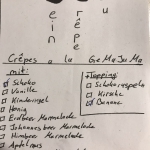 ein
Crêpe
u
Crêpes a la GeMaJuMa
mit:
Schoko
Vanille
Kinderriegel
Honig
Erdbeer Marmelade
Johannesbeer Marmelade
Himbeer Marmelade
Apfelmus
Topping:
Schokoraspeln
Kirsche
Banane